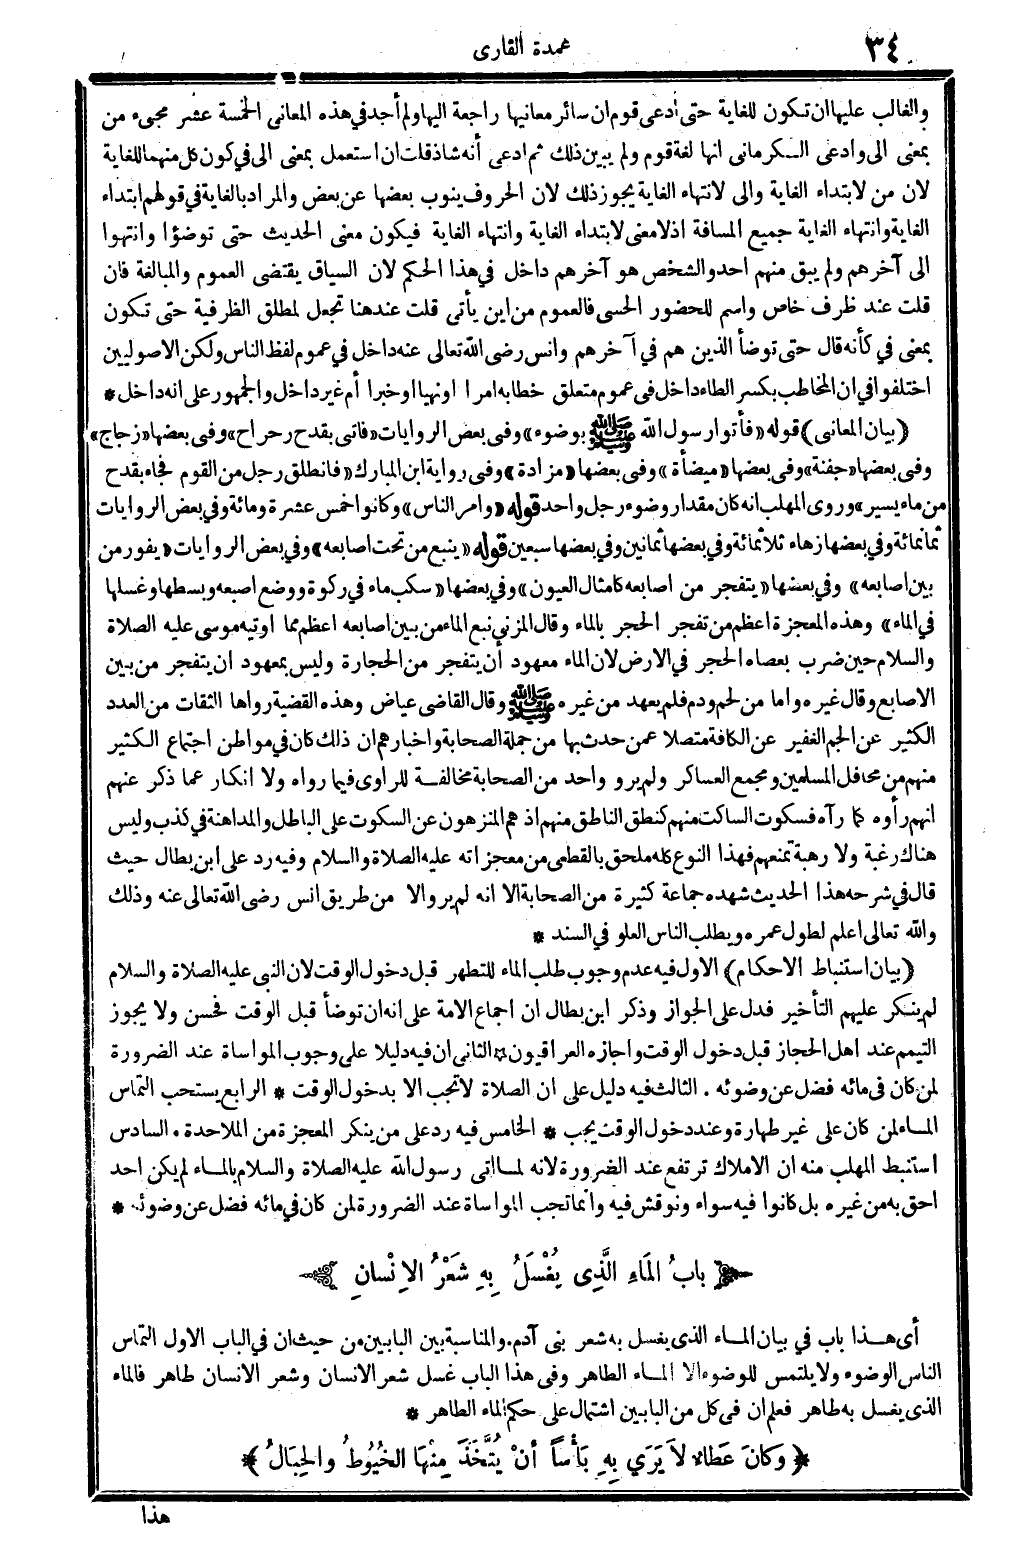 ٣٤
عمدة القارى
والغالب عليها ان تكون للغاية حتى أدعى قوم ان سائر معانيها راجعة اليها ولم أجد في هذه المعانى الخمسة عشر مجىء من
بمعنى الى وادعى الكرمانى انها لغة قوم ولم يبين ذلك ثم ادعى أنه شاذ قلت ان استعمل بمعنى الى في كون كل منهما للغاية
لان من لابتداء الغاية والى لانتهاء الغاية يجوز ذلك لان الحروف ينوب بعضها عن بعض والمراد بالغاية في قولهم ابتداء
الغاية وانتهاء الغاية جميع المسافة اذ لا معنى لابتداء الغاية وانتهاء الغاية فيكون معنى الحديث حتى توضؤا وانتهوا
الى آخرهم ولم يبق منهم احد والشخص هو آخرهم داخل في هذا الحكم لان السياق يقتضى العموم والمبالغة فان
قلت عند ظرف خاص واسم للحضور الحسى فالعموم من اين يأتى قلت عند هنا تجعل لمطلق الظرفية حتى تكون
بمعنى في كأنه قال حتى توضأ الذين هم في آخرهم وانس رضى الله تعالى عنه داخل في عموم لفظ الناس ولكن الاصوليين
اختلفوا في ان المخاطب بكسر الطاء داخل في عموم متعلق خطابه امرا او نهيا او خبرا أم غير داخل والجمهور على انه داخل *
(بيان المعانى) قوله «فأتوا رسول الله صلى الله عليه وسلم بوضوء» وفى بعض الروايات «فاتى بقدح رحراح» وفى بعضها «زجاج»
وفى بعضها «جفنة» وفى بعضها «ميضأة» وفى بعضها «مزادة» وفى رواية ابن المبارك «فانطلق رجل من القوم فجاء بقدح
من ماء يسير» وروى المهلب انه كان مقدار وضوء رجل واحد قوله «وامر الناس» وكانوا خمس عشرة ومائة وفي بعض الروايات
ثمانمائة وفي بعضها زهاء ثلاثمائة وفي بعضها ثمانين وفي بعضها سبعين قوله «ينبع من تحت اصابعه» وفي بعض الروايات «يفور من
بين اصابعه» وفي بعضها «يتفجر من اصابعه كامثال العيون» وفي بعضها «سكب ماء في ركوة ووضع اصبعه وبسطها وغسلها
في الماء» وهذه المعجزة اعظم من تفجر الحجر بالماء وقال المزني نبع الماء من بين اصابعه اعظم مما اوتيه موسى عليه الصلاة
والسلام حين ضرب بعصاه الحجر في الارض لان الماء معهود أن يتفجر من الحجارة وليس بمعهود ان يتفجر من بين
الاصابع وقال غيره واما من لحم ودم فلم يعهد من غيره صلى الله عليه وسلم وقال القاضى عياض وهذه القضية رواها الثقات من العدد
الكثير عن الجم الغفير عن الكافة متصلا عمن حدث بها من جملة الصحابة واخبارهم ان ذلك كان في مواطن اجتماع الكثير
منهم من محافل المسلمين ومجمع العساكر ولم يرو واحد من الصحابة مخالفة للراوى فيما رواه ولا انكار عما ذكر عنهم
انهم رأوه كما رآه فسكوت الساكت منهم كنطق الناطق منهم اذ هم المنزهون عن السكوت على الباطل والمداهنة في كذب وليس
هناك رغبة ولا رهبة تمنعهم فهذا النوع كله ملحق بالقطعى من معجزاته عليه الصلاة والسلام وفيه رد على ابن بطال حيث
قال في شرحه هذا الحديث شهده جماعة كثيرة من الصحابة الا انه لم يرو الا من طريق انس رضى الله تعالى عنه وذلك
والله تعالى اعلم لطول عمره ويطلب الناس العلو في السند *
(بيان استنباط الاحكام) الاول فيه عدم وجوب طلب الماء للتطهر قبل دخول الوقت لان النبى عليه الصلاة والسلام
لم ينكر عليهم التأخير فدل على الجواز وذكر ابن بطال ان اجماع الامة على انه ان توضأ قبل الوقت فحسن ولا يجوز
التيمم عند اهل الحجاز قبل دخول الوقت واجازه العراقيون * الثانى ان فيه دليلا على وجوب المواساة عند الضرورة
لمن كان في مائه فضل عن وضوئه . الثالث فيه دليل على ان الصلاة لا تجب الا بدخول الوقت * الرابع يستحب التماس
الماء لمن كان على غير طهارة وعند دخول الوقت يجب * الخامس فيه رد على من ينكر المعجزة من الملاحدة . السادس
استنبط المهلب منه ان الاملاك ترتفع عند الضرورة لانه لما اتى رسول الله عليه الصلاة والسلام بالماء لم يكن احد
احق به من غيره بل كانوا فيه سواء ونوقش فيه وانما تجب المواساة عند الضرورة لمن كان في مائه فضل عن وضوئه *
بابُ المَاءِ الَّذِى يُغْسَلُ بِهِ شَعْرُ الإِنْسانِ
أى هذا باب في بيان الماء الذى يغسل به شعر بنى آدم. والمناسبة بين البابين من حيث ان في الباب الاول التماس
الناس الوضوء ولا يلتمس للوضوء الا الماء الطاهر وفى هذا الباب غسل شعر الانسان وشعر الانسان طاهر فالماء
الذى يغسل به طاهر فعلم ان في كل من البابين اشتمال على حكم الماء الطاهر *
﴿ وكانَ عَطاءٌ لاَ يَرَي بِهِ بَأْساً أنْ يُتَّخَذَ مِنْها الخُيُوطُ والحِبَالُ ﴾
هذا